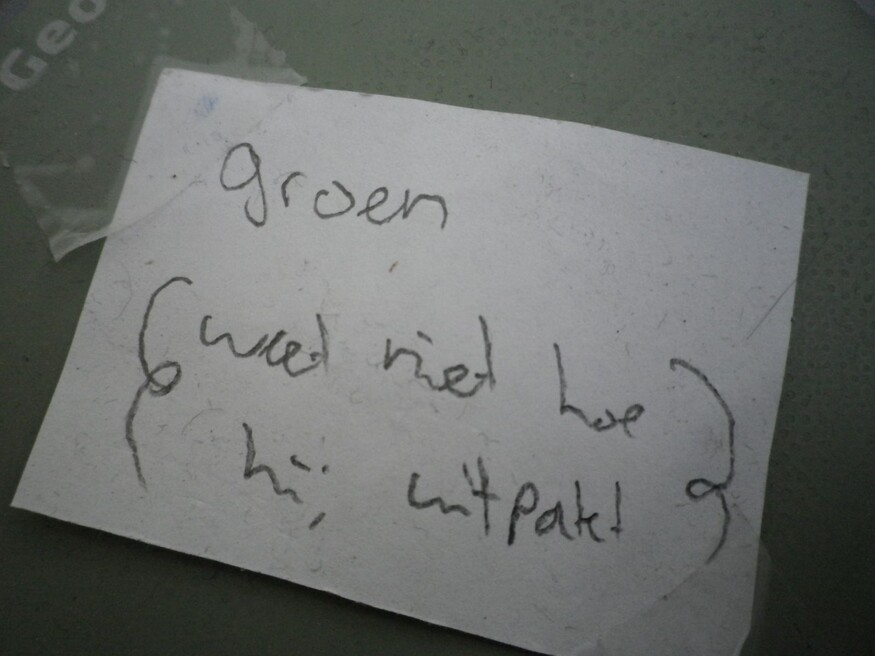 Geo
groen
(weet niet hoe
hij uitpakt)